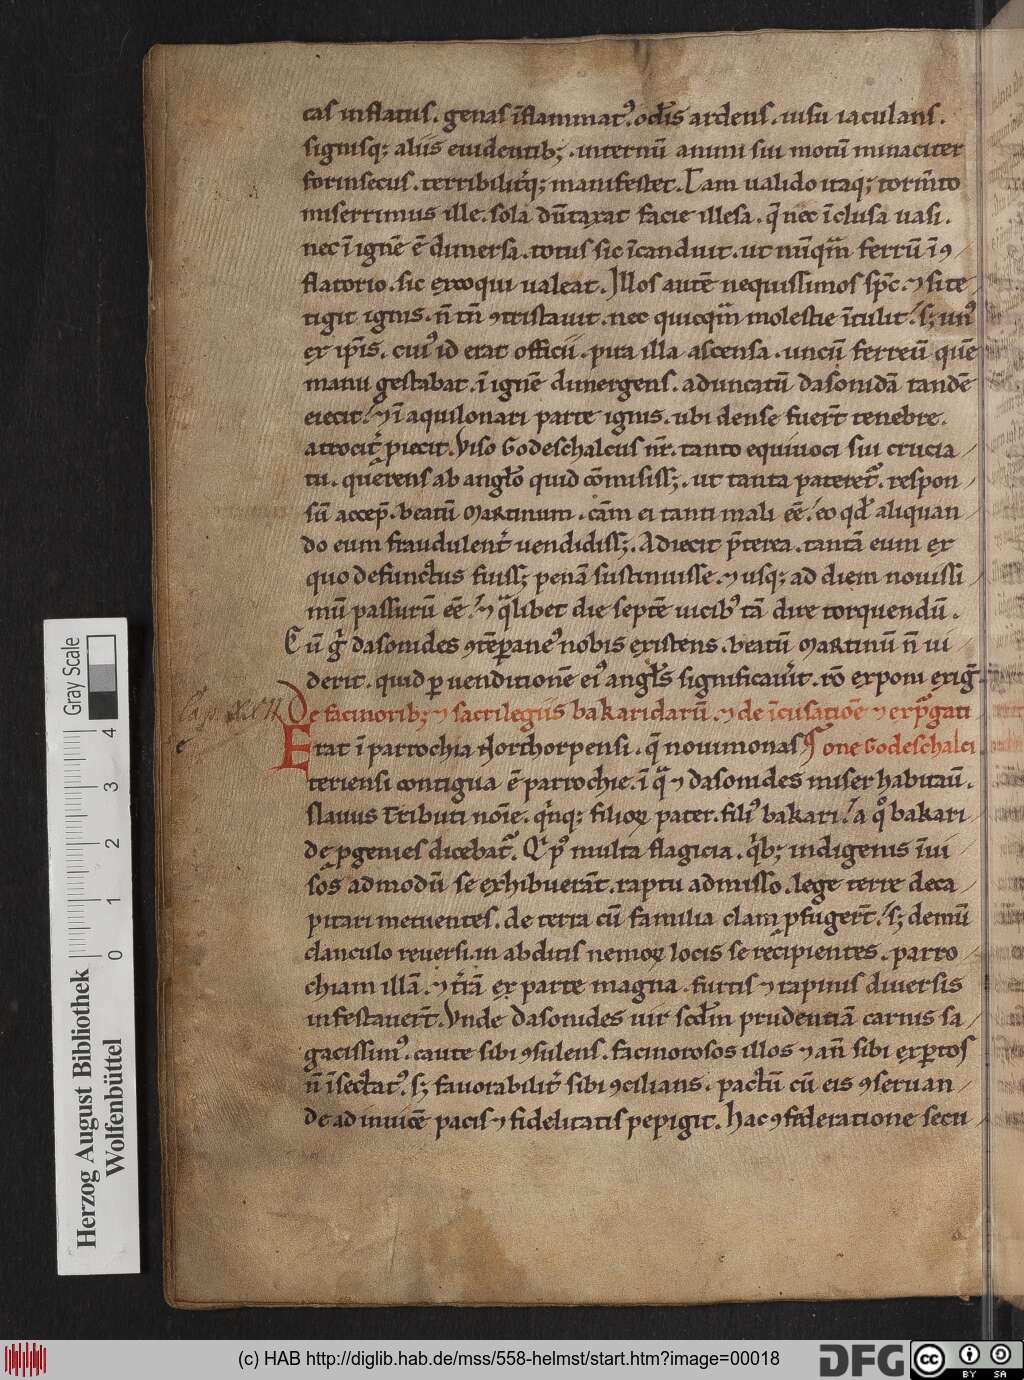 cas inflatus. genas īflammatꝰ. oc̄lis ardens. uisu iaculans.
signisq; aliis euidentib;. internū animi sui motū minaciter
forinsecus. terribilit̄q; manifestet. Tam ualido itaq; torm̄to
miserrimus ille. sola dūtaxat facie illesa. q̄ nec īclusa uasi.
nec ī ignē ē dimersa. totus sic īcanduit. ut nūq̄m ferrū ī ꝯ
flatorio. sic excoqui ualeat. Illos autē nequissimos sp̄c. ⁊ si te
tigit ignis. n̄ tn̄ ꝯtristauit. nec quicq̄m molestie ītulit. s; unꝰ
ex ip̄is. cuiꝰ id erat officii. pira illa ascensa. uncū ferreū quē
manu gestabat. ī ignē dimergens. aduncatū dasonidā tandē
eiecit. ⁊ ī aquilonari parte ignis. ubi dense fuer̄t tenebre.
atrocit̄ ꝓiecit. Viso Godeschalcus nr̄. tanto equiuoci sui crucia
tu. querens ab angl̄o quid cōmisiss;. ut tanta pateret̄. respon
sū accep̄. beatū Martinum. cām ei tanti mali eē. eo qd̄ aliquan
do eum fraudulent̄ uendidiss;. Adiecit p̄terea. tantā eum ex
quo defunctus fuiss; penā sustinuisse. ⁊ usq; ad diem nouissi
mū passurū eē. ⁊ q̄libet die septē uicibꝰ tā dire torquendū.
Cū g̊ dasonides ꝯtēꝑaneꝰ nobis existens. beatū Martinū n̄ ui
derit. quid ꝑ uenditionē eiꝰ angl̄s significauit̄. rō exponi exiḡ.
Cap. XVII De facinorib; ⁊ sacrilegiis bakaridarū. ⁊ de īcusatiōe ⁊ expḡati
one Godeschalci
Erat ī parrochia Northorpensi. q̄ nouimonas
teriensi contigua ē parrochie. ī q̄ ⁊ dasonides miser habitau̅.
slauus Tributi noīe. q̇nq; filioꝝ pater. filiꝰ bakari. a q̊ bakari
de ꝓgenies dicebat̄. Qi pꝰ multa flagicia. q̇b; indigenis īui
sos admodū se exhibuerāt. raptu admisso. lege terre deca
pitari metuentes. de terra cū familia clam ꝓfuger̄t. s; demū
clanculo reuersi. in abditis nemoꝝ locis se recipientes. parro
chiam illā. ⁊ t̄rā ex parte magna. furtis ⁊ rapinis diuersis
infestauer̄t. Vnde dasonides uir scd̄m prudentiā carnis sa
gacissimꝰ. caute sibi ꝯsulens. facinorosos illos ⁊ an̄ sibi exꝑtos
n̄ īsectatꝰ. s; fauorabilit̄ sibi ꝯcilians. pactū cū eis ꝯseruan
de ad inuicē pacis ⁊ fidelitatis pepigit. Hac ꝯfederatione secu
Gray Scale
4 3 2 1 0
Herzog August Bibliothek
Wolfenbüttel
(c) HAB http://diglib.hab.de/mss/558-helmst/start.htm?image=00018
DFG
cc BY SA